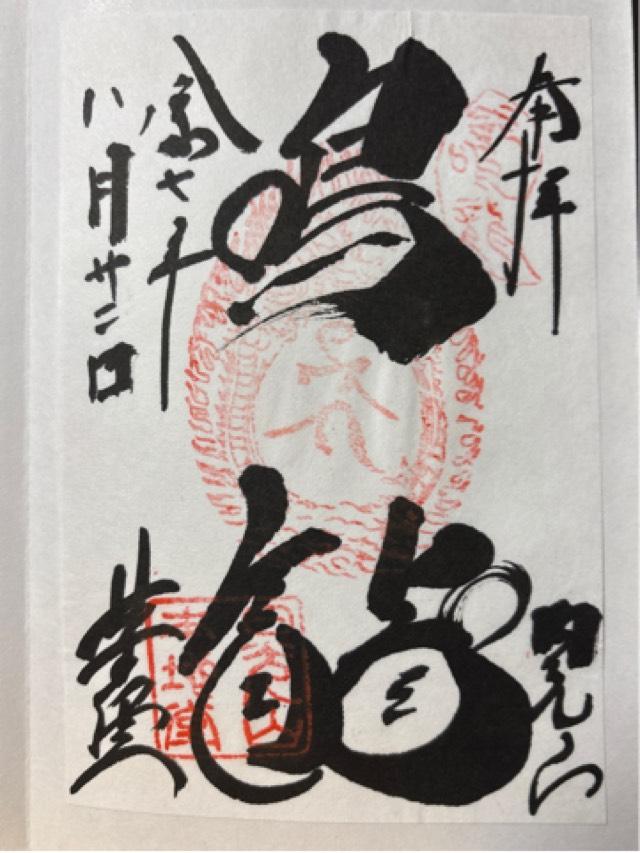 奉拝
日光山
鳴龍
令和七年
八月廿二日
薬師堂